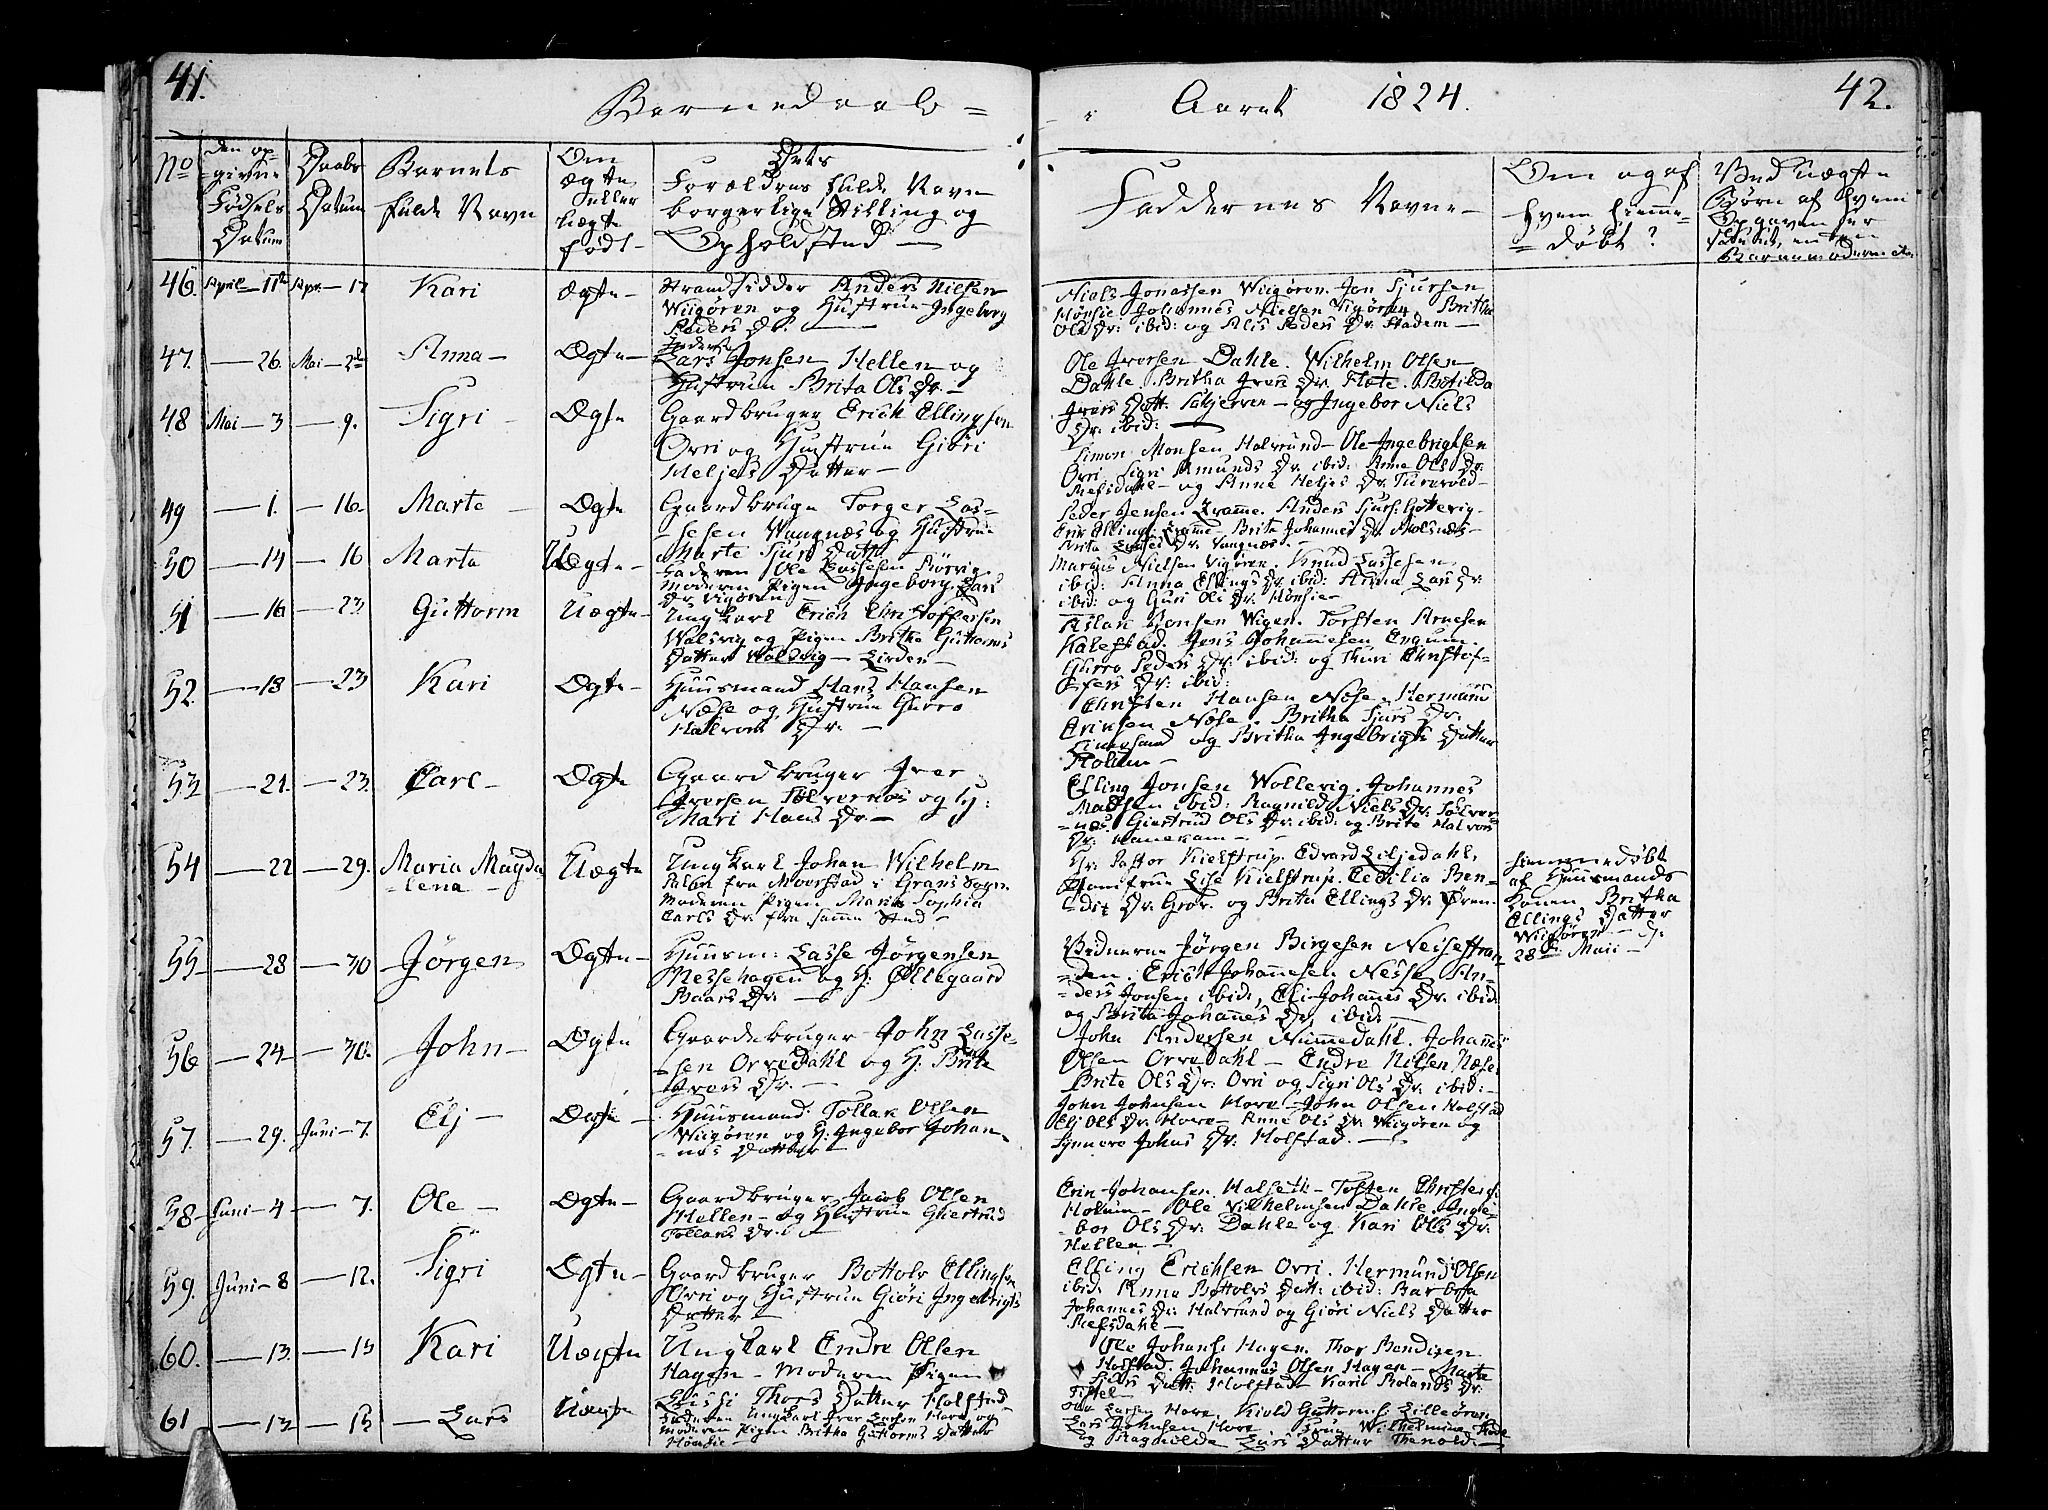 41.
Barnedaab =
i Aaret 1824.
42.
No
Den op-
givne
Fødsels
Datum
Daabs
Datum
Barnets
fulde Navn
Om
Ægte
eller
Uægte
født-
Dets
Forældres fulde Navn
borgerlige Stilling og
Opholdsted
Faddernes Navne-
Om og af
hvem hiemme-
=døbt?
Ved Uægte
Børn af hvem
Opgaven er
Barnemoderen
46. April-11te Apr.-17 Kari Ægte- Strandsidder Anders Nilsen
Wiigøren og Hustrue Ingeborg
Peders Dr.
Niels Jonassen Wiigøren. Jon Sjursen
Hønsie Johannes Nielsen Vigøren Britha
Ols Dr: ibid: og Alis Peders Dr. Stadem-
47. - 26. Mai-2de Anna- Ægte-
Lars Jonsen Hellen og
Hustrue Brita Ols Dr.-
Ole Iversen Dahle. Wilhelm Olsen
Dahle. Britha Ivers Dr. Flete. Botilda
Ivers Datt. Schjerven- og Ingebor Niels
Dr: ibid:
48 Mai-3 -9. Sigri Ægte Gaardbruger Erich Ellingsen
Orri og Hustrue Giøri
Heljes Datter-
Simon Monsen Halvrund- Ole Ingebrigtsen
Orri Sigri Amunds Dr. ibid: Anne Ols Dr:
Refsdahl- og Anne Heljes Dr.
49 -1. -16. Marte Ægte Gaardbruge Torger Las-
-sesen Wangnæs og Hustrue
Marte Sjurs Datt
Peder Jensen Framme. Anders Sjurs:
Erik Ellings: Framme- Brita Johannes Dr.
Brita Lasses Dr. Vangnæs.-
50 -14 -16 Marta Uægte- Faderen Ole Lassesen Rørvig
Moderen Pigen Ingeborg Lars
Dr Vigøren
Margus Nielsen Vigøren. Knud Lassesen
ibid: Anna Ellings Dr. ibid: Anna Lars Dr.
ibid: og Guri Ols Dr. Hønsie-
51 -16 -23 Guttorm Uægte- Ungkarl Erich Christoffersen
Walsvig og Pigen Britha Guttorms
Datter Walsvig-
Aslak Jonsen Wigen. Torsten Arnesen
Kalestad. Jens Johannesen Engum.
Gurro Peders Dr: ibid: og Thuri Christof-
fers Dr: ibid:
52. -18 -23 Kari Ægte- Huusmand Hans Hansen
Næse og Hustrue Gurro
Halvors Dr.-
Christen Hansen Nøse. Hermund
Eriksen Nøse. Britha Sjurs Dr.
og Britha Ingebrigts Datter
Holum-
53 -21. -23. Carl- Ægte Gaardbruger Iver
Iversen Sølvernæs og H:
Mari Hans Dr-
Elling Jonsen Wollevig. Johannes
Madsen ibid: Ragnild Niels Dr: Sølver-
-næs. Giertrud Ols Dr: ibid: og Brite Halvors
Dr.
54 -22 -29. Maria Magda
-lena- Uægte Ungkarl Johan Wilhelm
fra Moorstad i Grans Sogn
Moderen Pigen Maria Sophia
Carls Dr. fra samme Sted-
Hr. Pastor Kielstrup. Edvard Liljedahl.
Lise Kielstrup. Cecilia Ben-
-dix Dr: Grøv. og Brita Ellings Dr.
Hiemmedøbt
af Huusmands
Konen Britha
Ellings Datter
Wiigøren- d:
28de Maii-
55 -28 -30 Jørgen Ægte- Huusm: Lasse Jørgensen
Nessehagen og H: Øllegaard
Baars Dr.
Jørgen Birgesen Neisestran-
=den. Erich Johannesen Nesse An-
=ders Jonsen ibid, Eli Johannes Dr. ibid:
og Brita Johanes Dr. ibid:-
56 -24 -30. John- Ægte Gaardbruger John Lasse-
-sen Orredahl og H: Brite
Ivers Dr.
John Andersen Nummedahl. Johannes
Olsen Orredahl- Endre Nilsen Næse.
Brite Ols Dr: Orri og Sigri Ols Dr. ibid:-
57. -29. Juni-7. Elj- Ægte- Huusmand: Tollak Olsen
Wiigøren og H: Ingebor Johan-
-nes Datter
John Johnsen Hove- John Olsen Holstad
Elj Ols Dr. Hove- Anne Ols Dr Wiigøren og
Synneve Johns Dr. Holstad.-
58- Juni-4 -7. Ole- Ægte- Gaardbruger Jacob Olsen
Hellen- og Hustrue Giertrud
Tollaks Dr.
Erik Johansen Halseth- Tosten
Holum- Ole Vilhelmsen Dahle. Inge-
-bor Ols Dr. Dahle og Kari Ols Dr.
Hellen-
59. Juni-8 -12. Sigri Ægte- Gaardbruger Bottolv Ellingsen
Orri og Hustrue Giøri Ingebrigts
Datter-
Elling Erichsen Orri. Hermund Olsen
ibid: Anna Bottolvs Datt: ibid: Barbra
Johannes Dr: Halvrund og Giøri Niels Datter
Refsdahl-
60. -13. -15 Kari Uægte Ungkarl Endre Olsen
Hagen- Moderen Pigen
Thors Datter Holstad
Ole Johans: Hagen. Thor Bendixen
Holstad. Johannes Olsen Hagen- Marte
Datt: Holstad- Kari Rolands Dr.
61 -12 - Lars Uægte Faderen Ungkarl Iver Larsen Hove og
Moderen Pigen Britha Guttorms Datter
Hønsie-
Larsen Hove. Kield Guttorms: Lilleøren
Lars Johnsen Hove
og Ragnilde Lars Datter